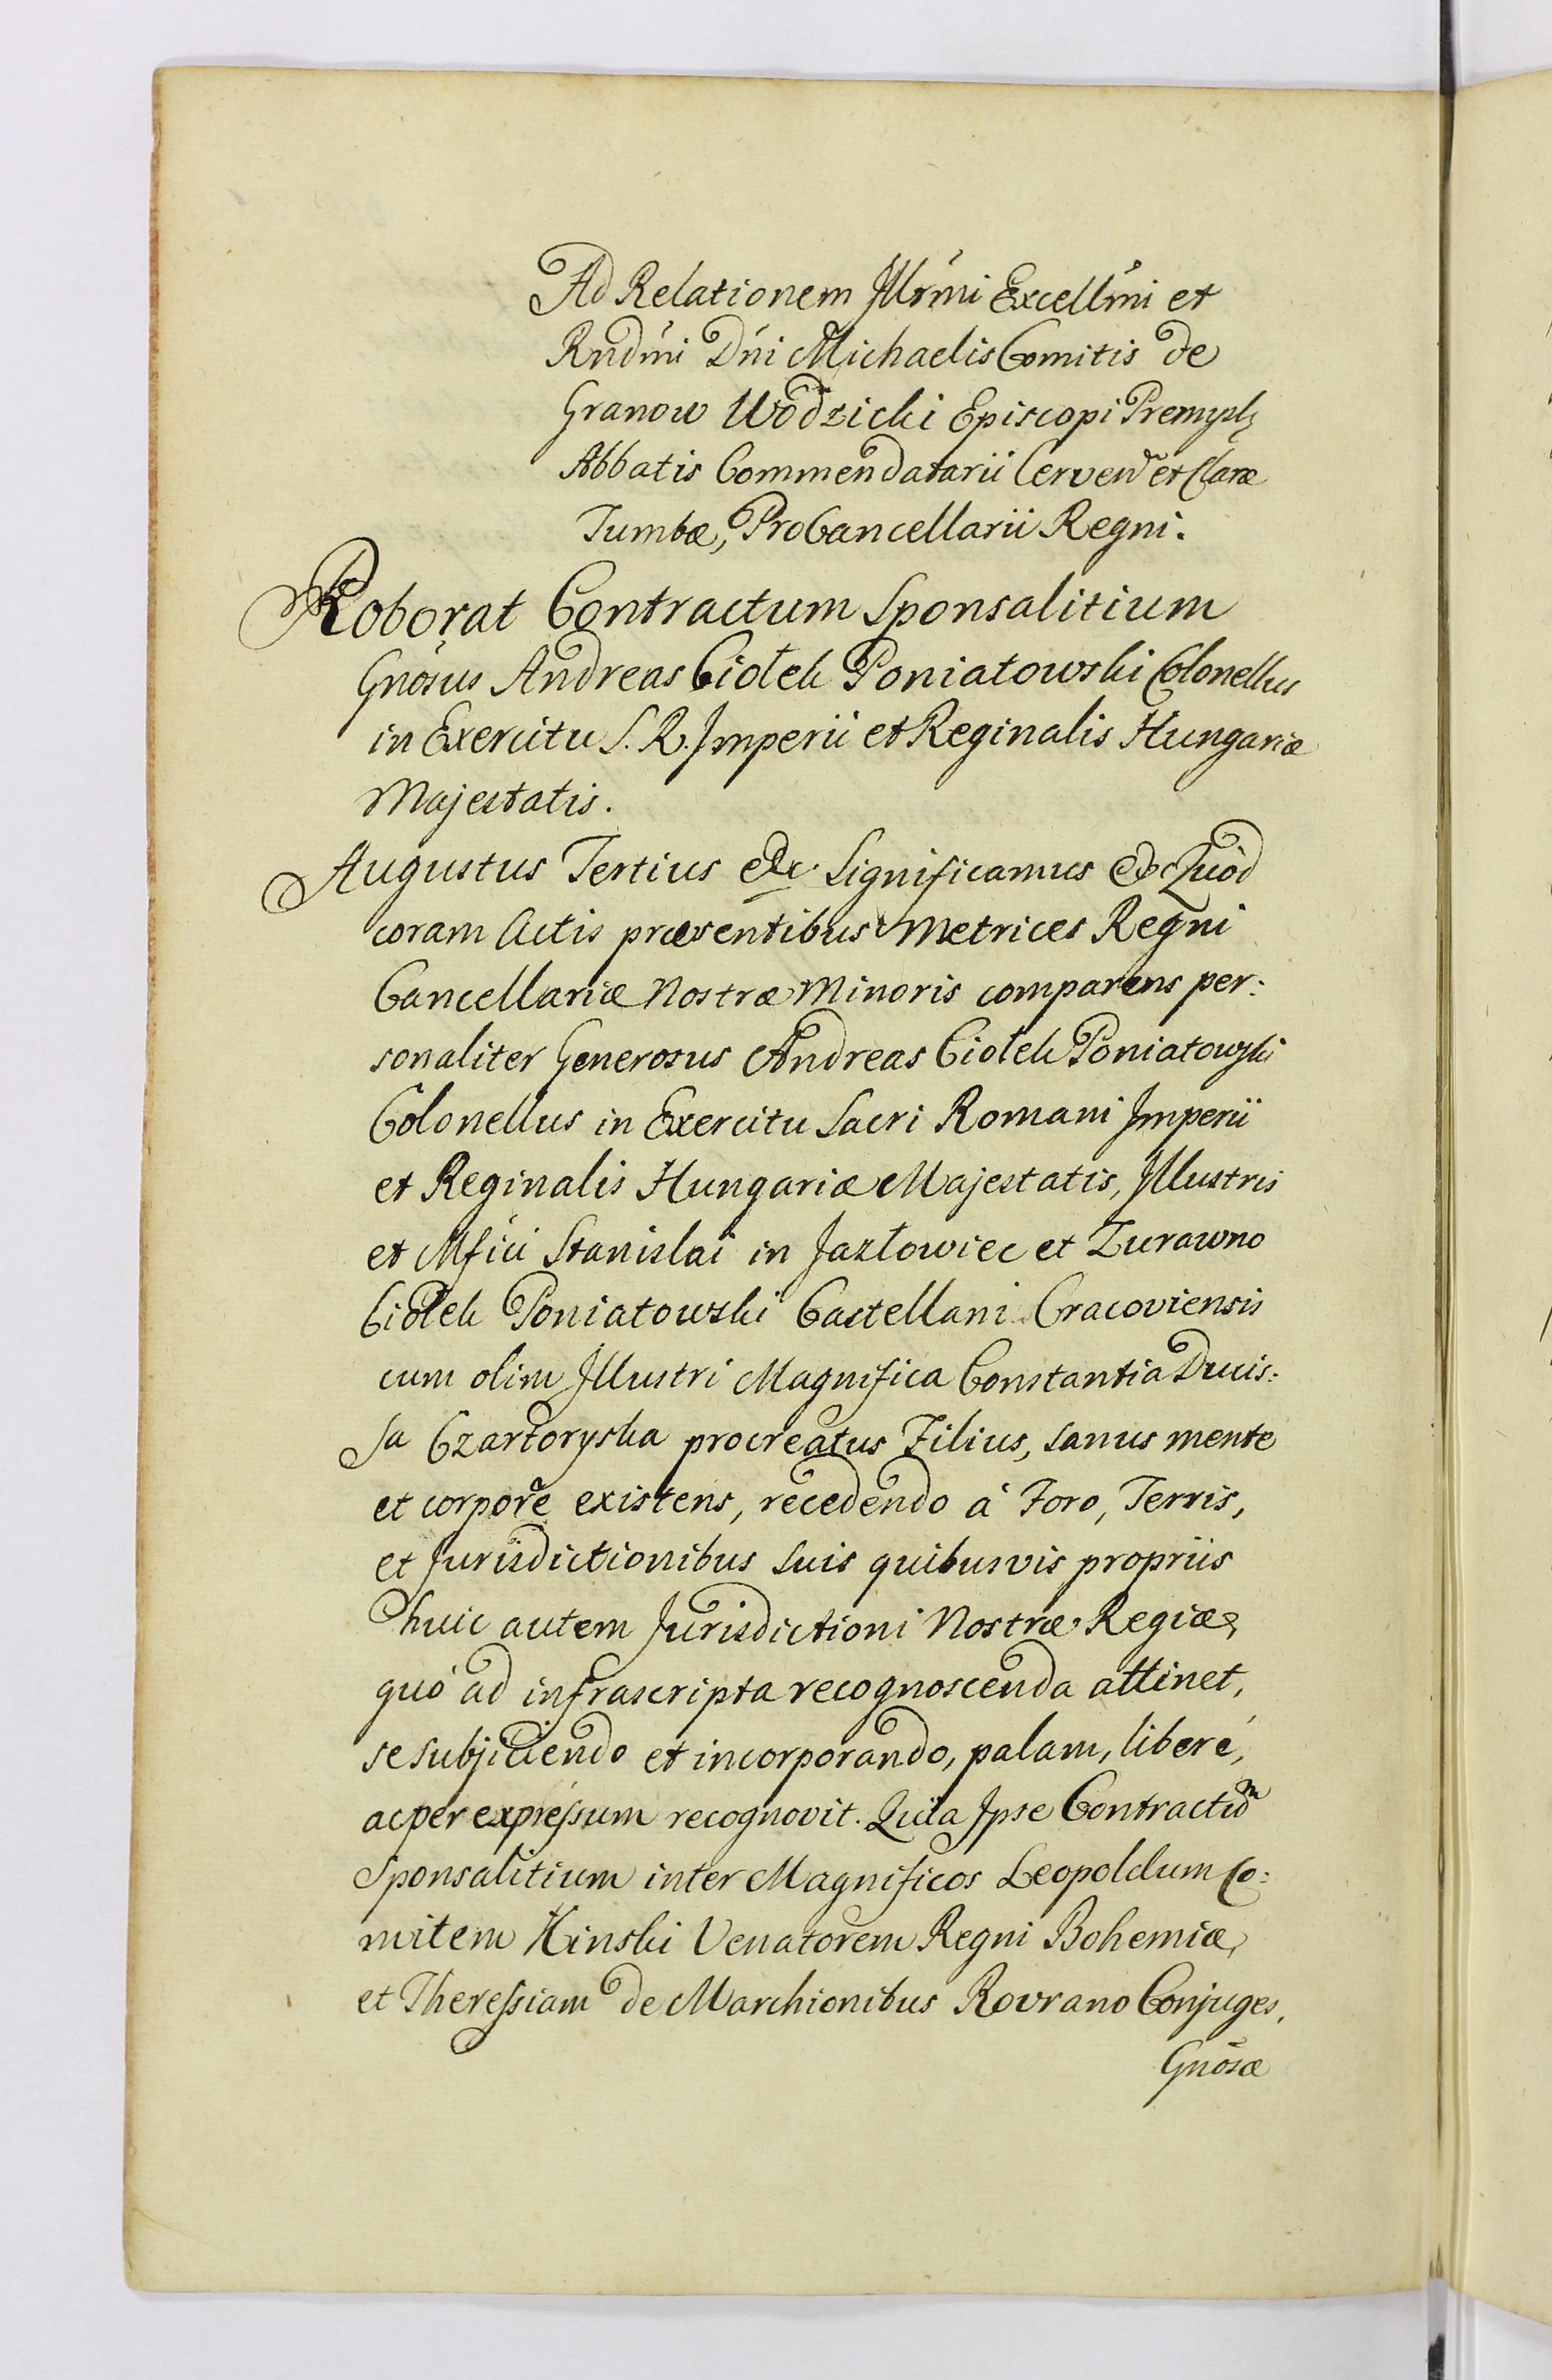 Ad Relationem Illrmi Excellmi et
Rndmi Dni Michaelis Comitis de
Granow Wodzicki Episcopi Premysl,
Abbatis Commendatarii Cerven et Claræ
Tumbæ, ProCancellarii Regni.
Roborat Contractum Sponsalitium
Gnosus Andreas Ciołek Poniatowski Colonellus
in Exercitu S. R. Imperii et Reginalis Hungariæ
Majestatis.
Augustus Tertius &c Significamus &c Quod
coram Actis præsentibus Metrices Regni
Cancellariæ Nostræ Minoris comparens per:
sonaliter Generosus Andreas Ciołek Poniatowski
Colonellus in Exercitu Sacri Romani Imperii
et Reginalis Hungariæ Majestatis, Illustris
et Mfici Stanislai in Jazłowiec et Zurawno
Ciołek Poniatowski Castellani Cracoviensis
cum olim Illustri Magnifica Constantia Ducis:
sa Czartoryska procreatus Filius, sanus mente
et corpore existens, recedendo à Foro, Terris,
et Jurisdictionibus suis quibusvis propriis
huic autem Jurisdictioni Nostræ Regiæ,
quó ad infrascripta recognoscenda attinet,
se subjiciendo et incorporando, palam, liberé,
ac per expressum recognovit. Quia Ipse Contractum
Sponsalitium inter Magnificos Leopoldum Co:
mitem Kinski Venatorem Regni Bohemiæ,
et Theressiam de Marchionibus Rovrano Conjuges,
Gnosæ